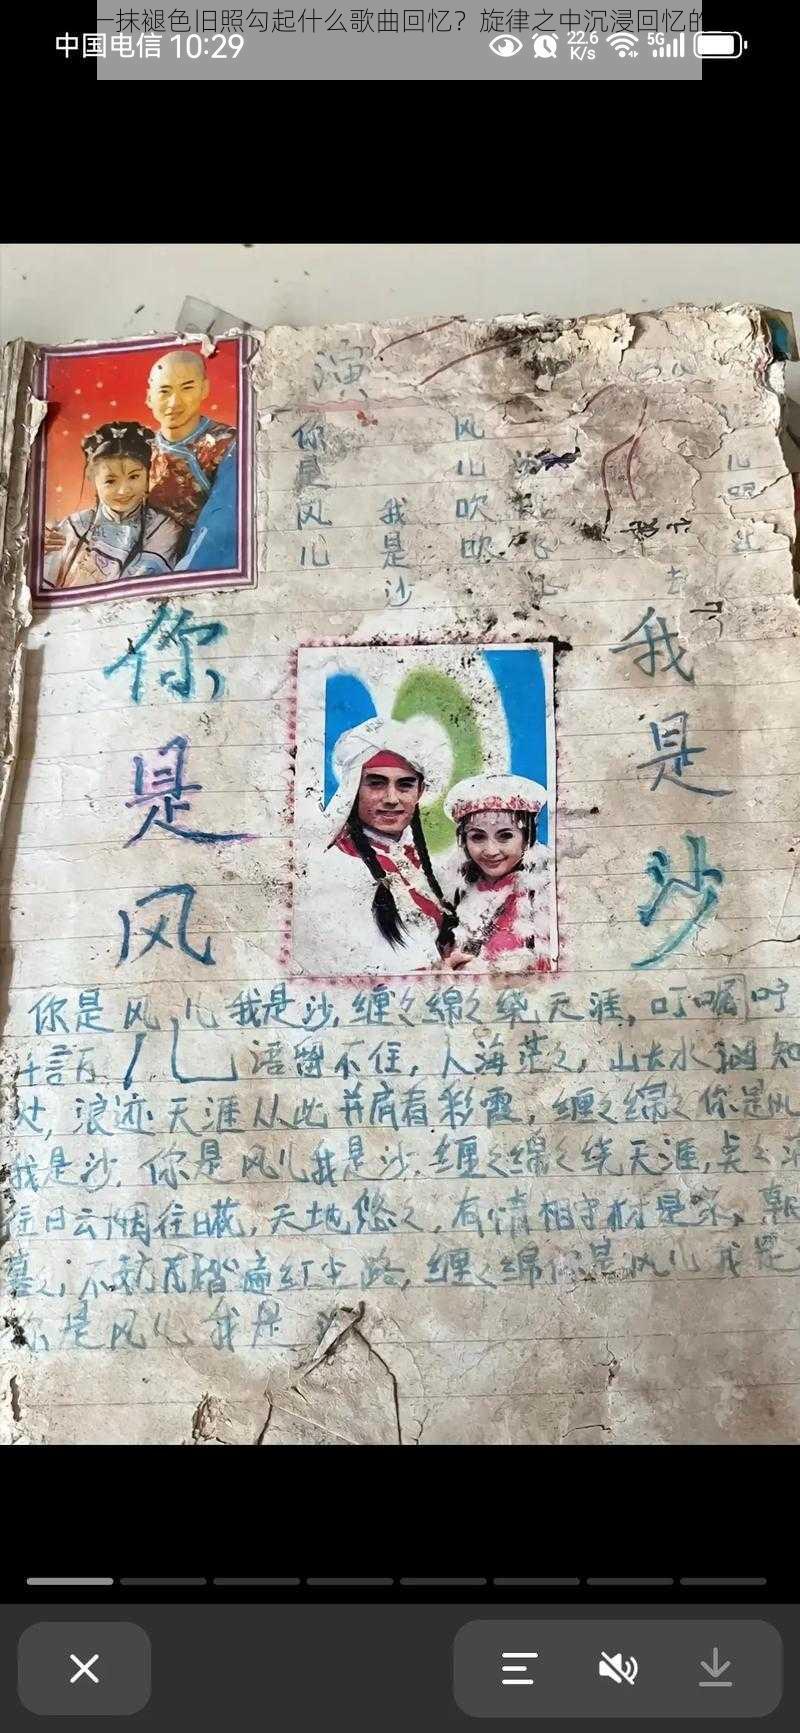 一抹褪色旧照勾起什么歌曲回忆？旋律之中沉浸回忆的
中国电信 10:29 22.6 K/s 5G
演
你是风儿
我是沙
风儿吹吹
你是风
我是沙
你是风儿我是沙,缠缠绵绵绕天涯,叮嘱咛
千言万儿语留不住,人海茫茫,山长水阔知
处,浪迹天涯从此并肩看彩霞,缠缠绵绵你是风
我是沙.你是风儿我是沙.缠缠绵绵绕天涯,
往日云烟往日花,天地悠悠,有情相守才是家,朝
暮暮,不妨踏遍红尘路,缠缠绵绵你是风儿我是
你是风儿我是沙